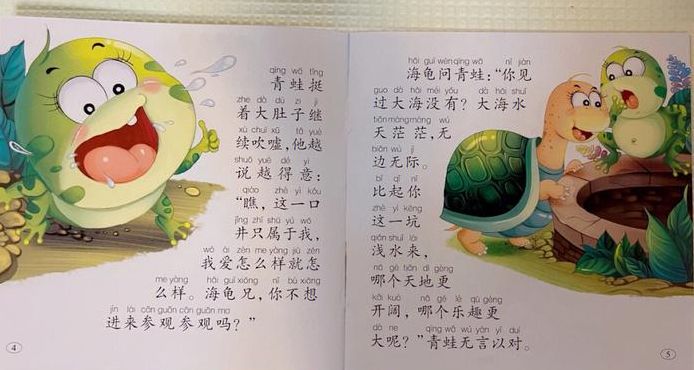 qīng wā tǐng
青蛙挺
zhe dà dù zi jì
着大肚子继
xù chuī xū tā yuè
续吹嘘,他越
shuō yuè dé yì
说越得意:
qiáo zhè yì kǒu
“瞧，这一口
jǐng zhǐ shǔ yú wǒ
井只属于我,
wǒ ài zěn me yàng jiù zěn
我爱怎么样就怎
me yàng hǎi guī xiōng nǐ bù xiǎng
么样。海龟兄,你不想
jìn lái cān guān cān guān ma
进来参观参观吗？”
4
hǎi guī wèn qīng wā nǐ jiàn
海龟问青蛙:“你见
guo dà hǎi méi yǒu dà hǎi shuǐ
过大海没有？大海水
tiān máng máng wú
天茫茫,无
biān wú jì
边无际。
bǐ qǐ nǐ
比起你
zhè yì kēng
这一坑
qiǎn shuǐ lái
浅水来,
nǎ gè tiān dì gèng
哪个天地更
kāi kuò nǎ gè lè qù gèng
开阔,哪个乐趣更
dà ne qīng wā wú yán yǐ duì
大呢？”青蛙无言以对。
5